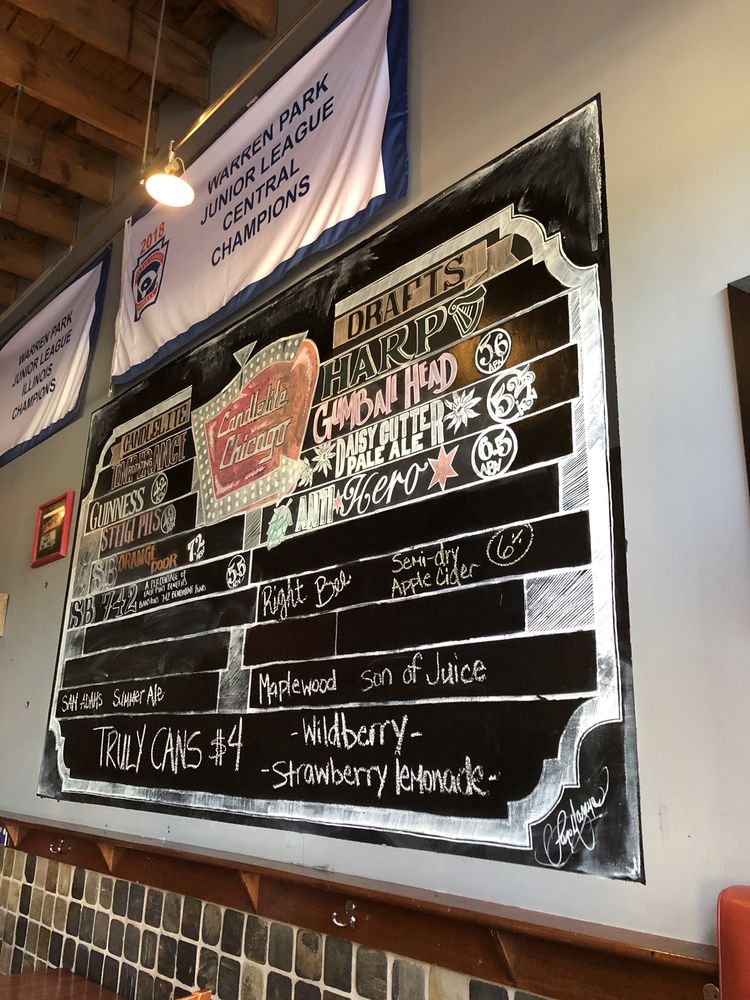 WARREN PARK
JUNIOR LEAGUE
CENTRAL
CHAMPIONS
2018
WARREN PARK
JUNIOR LEAGUE
ILLINOIS
CHAMPIONS
DRAFTS
HARP
GUMBALL HEAD 5.6 ABV
DAISY CUTTER
PALE ALE 5.2% ABV
ANTI Hero 6.5 ABV
Candlelite
Chicago
CANDLELITE
GUINNESS
STIEGL PILS
SB ORANGE DOOR 7.2 ABV
SB 742 5.5
A PERCENTAGE OF
EACH PINT BENEFITS
Right Bee Semi-dry
Apple Cider 6%
Maplewood Son of Juice
SAM ADAMS Summer Ale
TRULY CANS $4
-Wildberry-
-Strawberry lemonade-